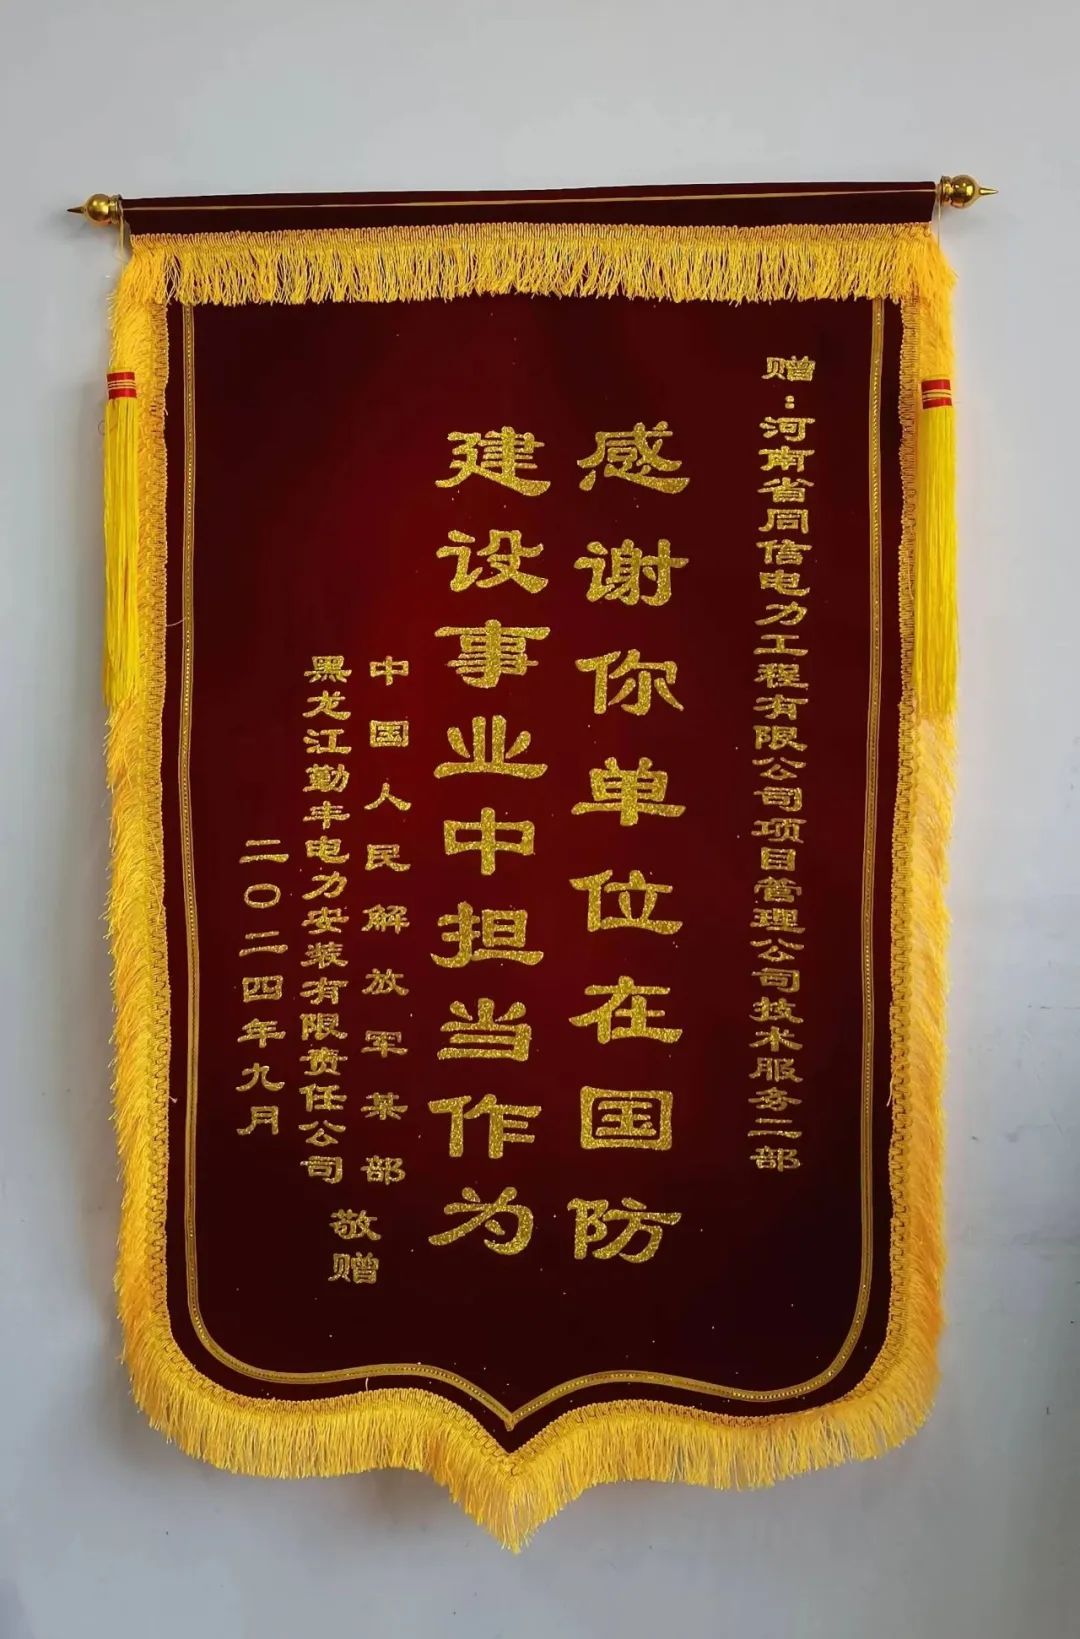 赠：河南省同信电力工程有限公司项目管理公司技术服务二部
感谢你单位在国防
建设事业中担当作为
中国人民解放军某部
黑龙江勤丰电力安装有限责任公司
敬赠
二〇二四年九月